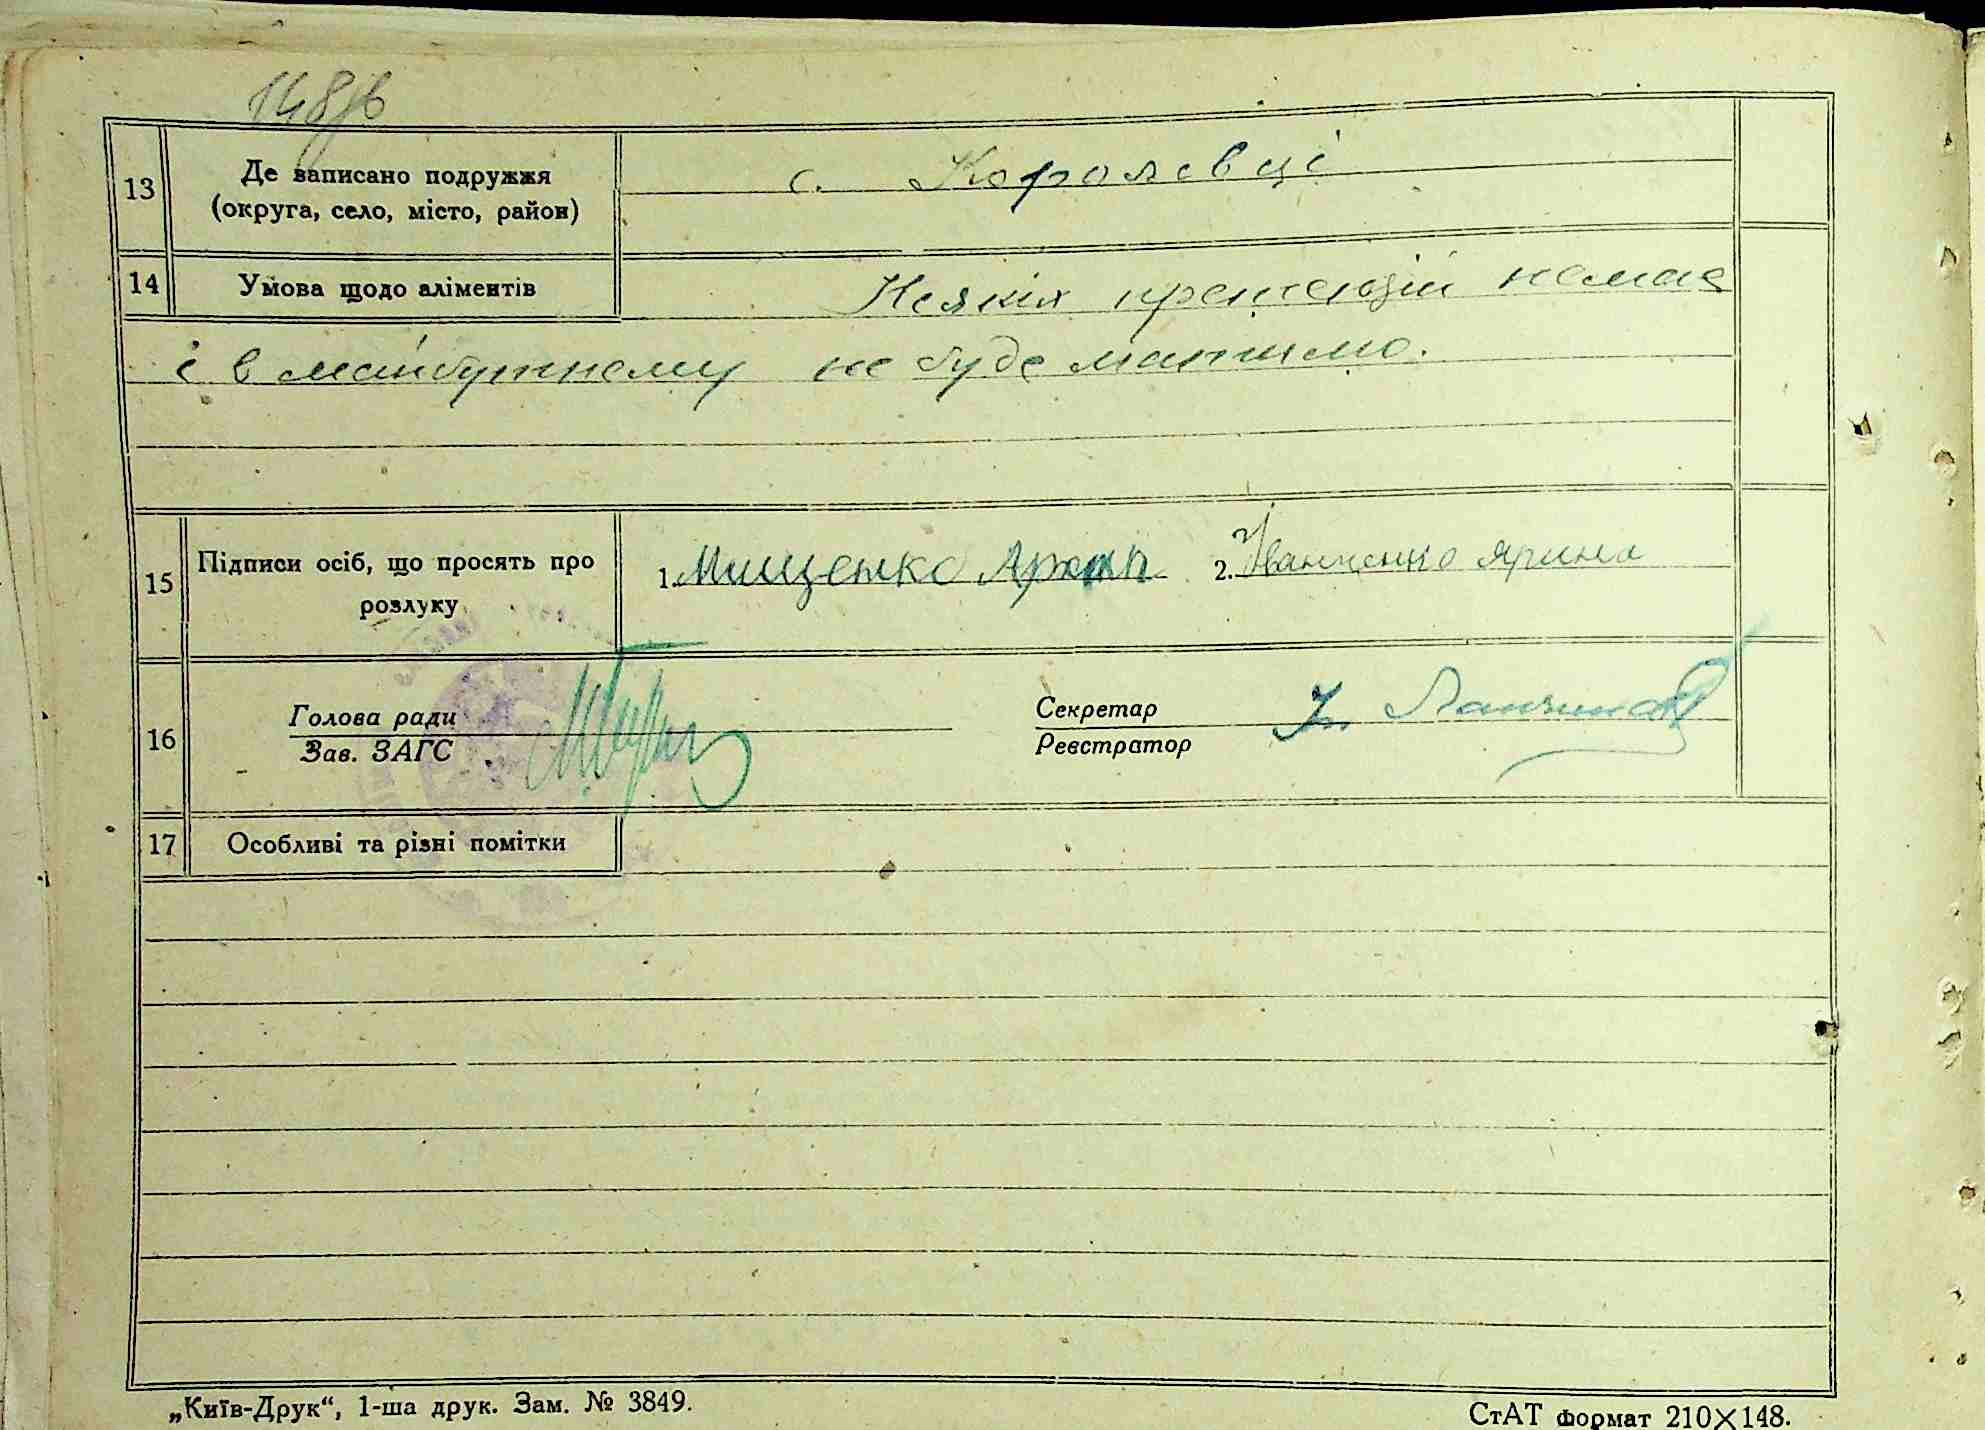 13
Де записано подружжя
(округа, село, місто, район)
с. Королевці
14
Умова щодо аліментів
Неяких претензій немає
і в майбутньому не буде матимо.
15
Підписи осіб, що просять про
розлуку
1. Мищенко Архип 2. Іванценко Ярина
16
Голова ради
Зав. ЗАГС
Секретар
Реєстратор
17
Особливі та різні помітки
„Київ-Друк“, 1-ша друк. Зам. № 3849.
СтАТ формат 210×148.